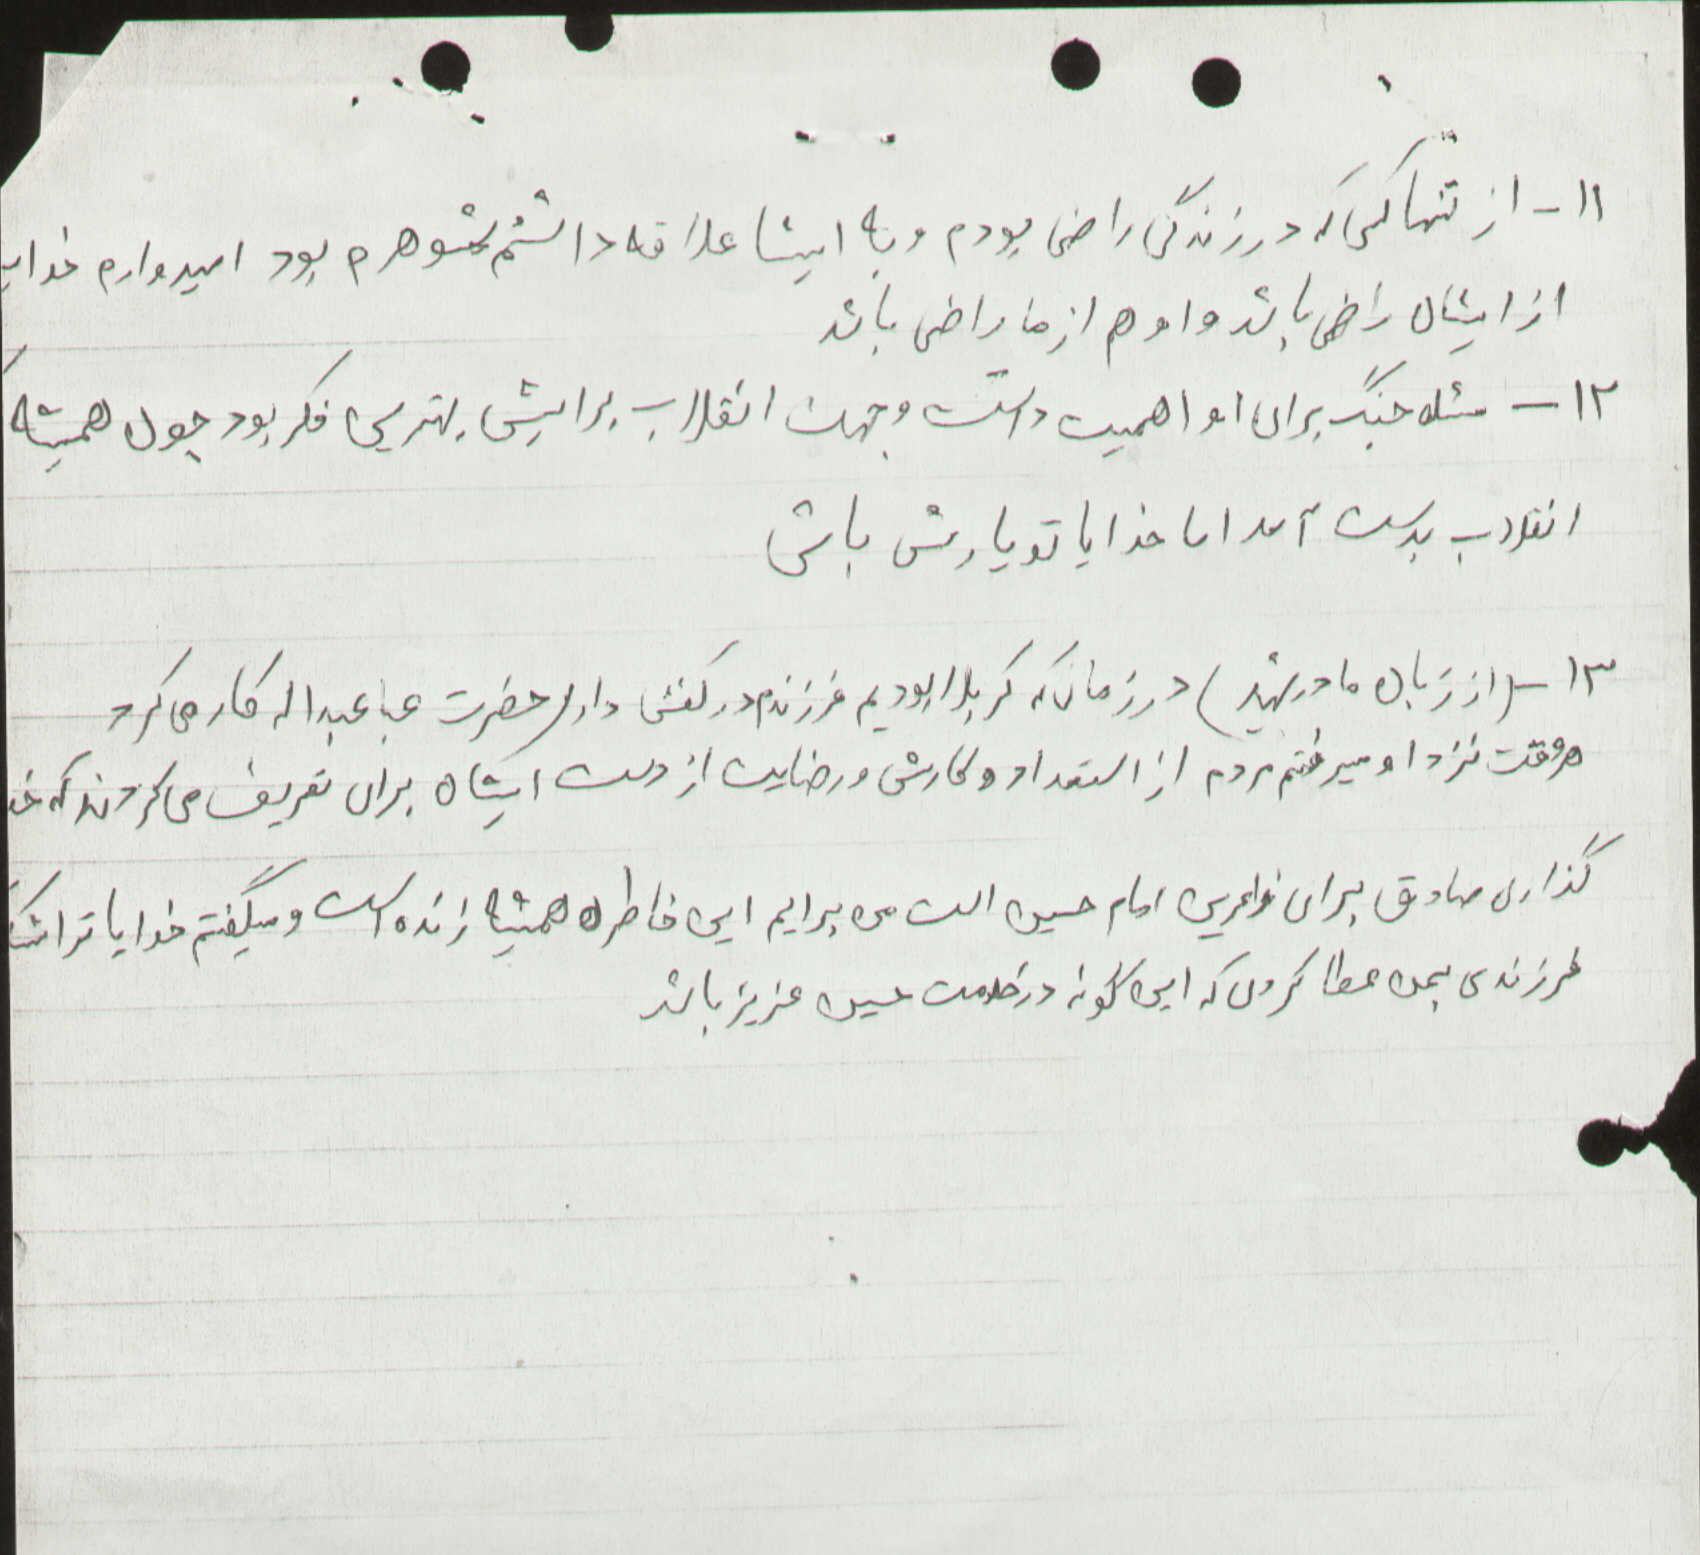 ۱۱- از تنها کسی که در زندگی راضی بودم و به ایشا علاقه داشتم شوهرم بود امیدوارم
از ایشان راضی باشد و او هم از ما راضی باشد
۱۲- مسئله جنگ برای او اهمیت داشت و جهت انقلاب برایش بهترین فکر بود چون همیشه
انقلاب بدست آمد اما خدایا تو یارش باشی
۱۳- (از زبان مادر شهید) در زمانی که کربلا بودیم فرزندم در کفش داری حضرت عبا عبداله کار می کرد
هر وقت نزد او میرفتم مردم از استعداد و کارش و رضایت از دست ایشان برای تعریف می کردند که
گذاری صادق برای زائرین امام حسین است می برایم این خاطره همیشه زنده است و میگفتم خدایا ترا
فرزندی بمن عطا کردی که این گونه در خدمت حسین عزیز باشد